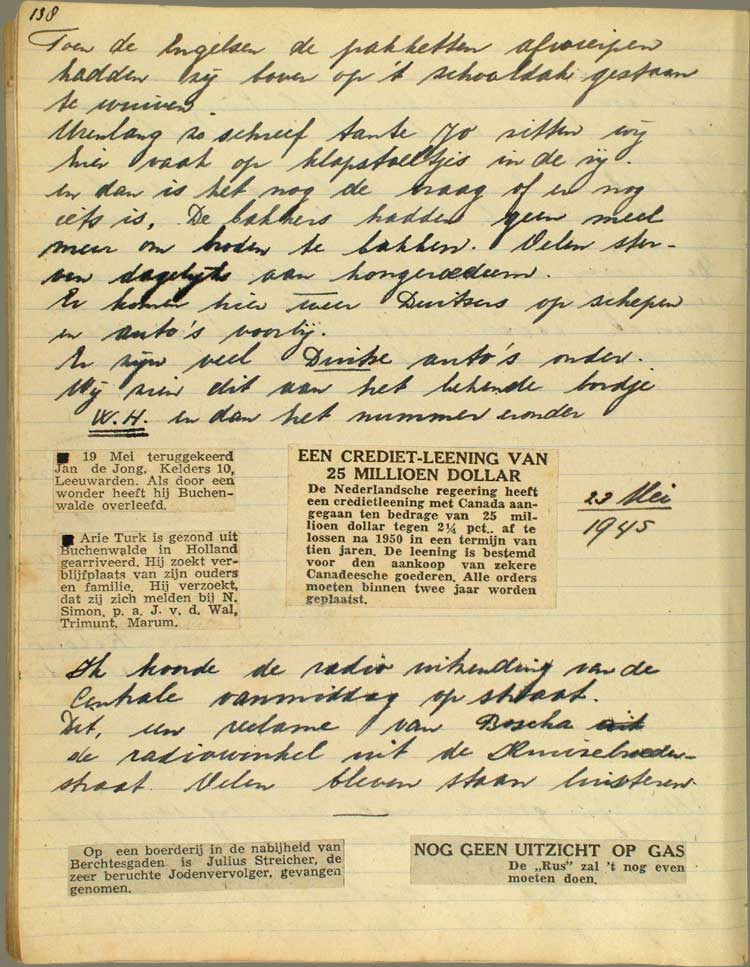 138
Toen de Engelsen de pakketten afwierpen
hadden zij boven op 't schooldak gestaan
te wuiven
Urenlang zo schreef tante Jo zitten wij
hier vaak op klapstoeltjes in de rij.
en dan is het nog de vraag of er nog
iets is. De bakkers hadden geen meel
meer om broden te bakken. Velen ster-
ven dagelijks aan hongeroedeem.
Er komen hier weer Duitsers op schepen
en auto's voorbij.
Er zijn veel Duitse auto's onder.
Wij zien dit aan het bekende bordje
W.H. en dan het nummer eronder
19 Mei teruggekeerd
Jan de Jong, Kelders 10,
Leeuwarden. Als door een
wonder heeft hij Buchen-
walde overleefd.
Arie Turk is gezond uit
Buchenwalde in Holland
gearriveerd. Hij zoekt ver-
blijfplaats van zijn ouders
en familie. Hij verzoekt,
dat zij zich melden bij N.
Simon, p. a. J. v. d. Wal,
Trimunt, Marum.
EEN CREDIET-LEENING VAN
25 MILLIOEN DOLLAR
De Nederlandsche regeering heeft
een credietleening met Canada aan-
gegaan ten bedrage van 25 mil-
lioen dollar tegen 2¼ pct., af te
lossen na 1950 in een termijn van
tien jaren. De leening is bestemd
voor den aankoop van zekere
Canadeesche goederen. Alle orders
moeten binnen twee jaar worden
geplaatst.
22 Mei
1945
Ik hoorde de radio uitzending van de
Centrale vanmiddag op straat.
Dit, een reclame van Boscha uit
de radiowinkel uit de Kruisebroeder-
straat. Velen bleven staan luisteren.
Op een boerderij in de nabijheid van
Berchtesgaden is Julius Streicher, de
zeer beruchte Jodenvervolger, gevangen
genomen.
NOG GEEN UITZICHT OP GAS
De „Rus" zal 't nog even
moeten doen.